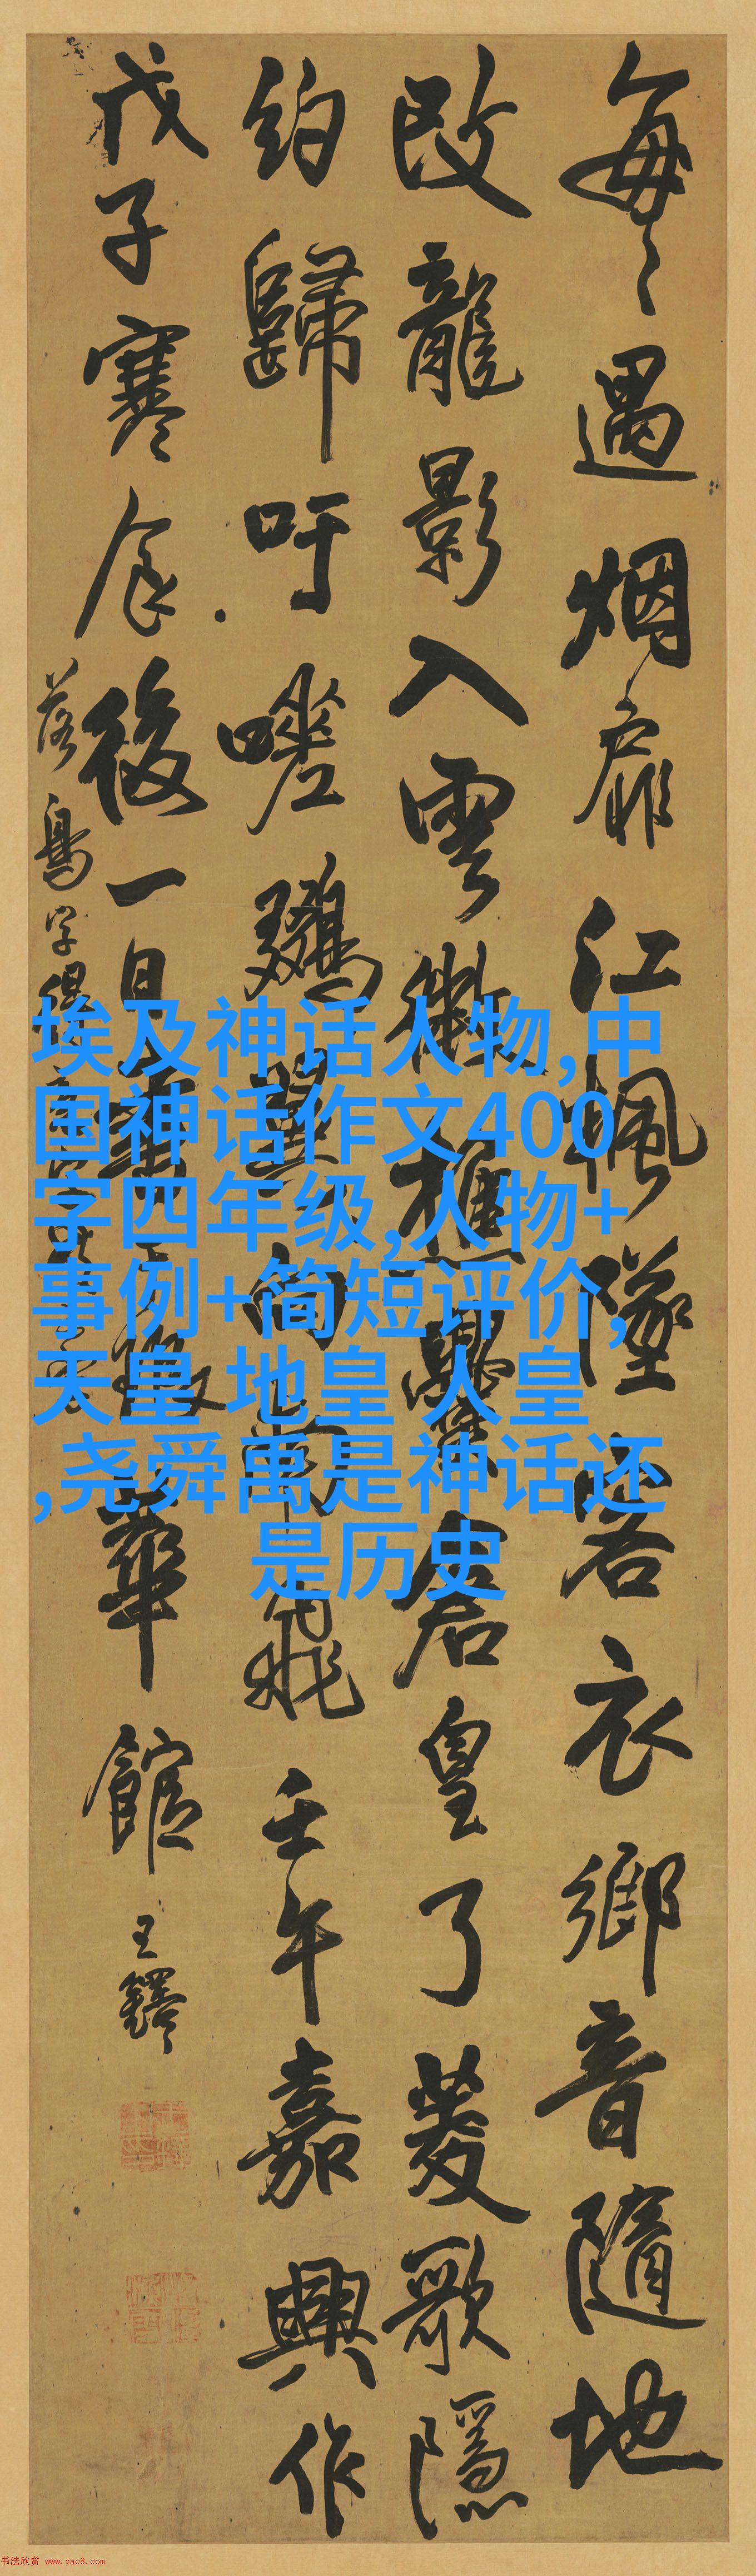 每々遇烟扉江楓墜客衣鄉音隨地
改龍影入雲微樵爨倉皇了菱歌隱
約歸吁嗟向飛壬午嘉興作
戊子寒食後一日書華館王鐸
落鳥字
埃及神话人物,中
国神话作文400
字四年级,人物+
事例+简短评价,
天皇 地皇 人皇
,尧舜禹是神话还
是历史
书法欣赏 www.yac8.com